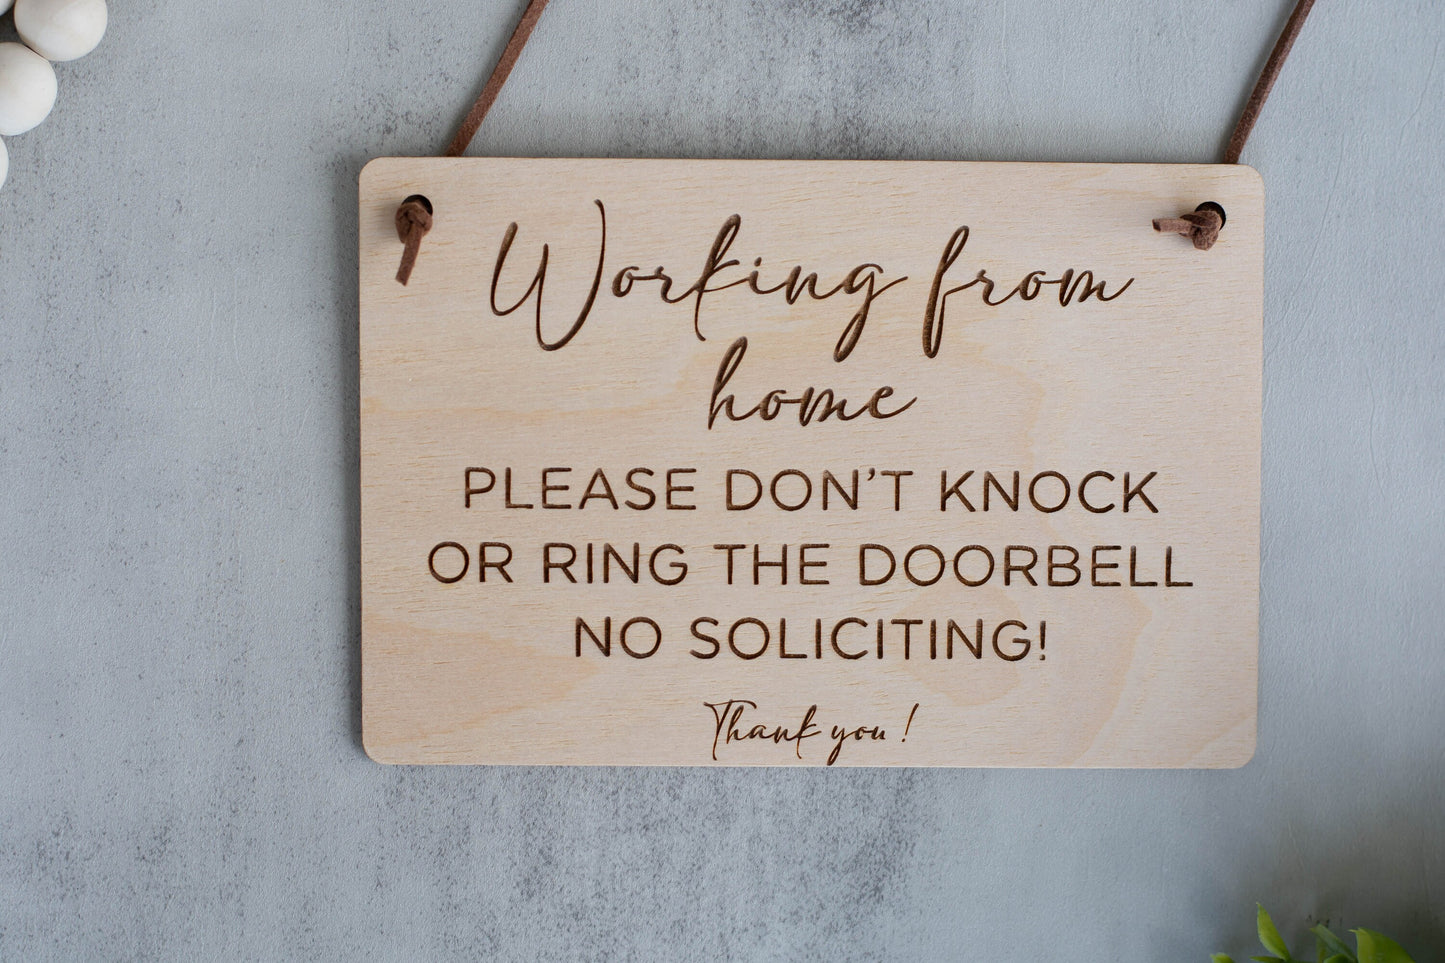 Working from
home
PLEASE DON'T KNOCK
OR RING THE DOORBELL
NO SOLICITING!
Thank you!